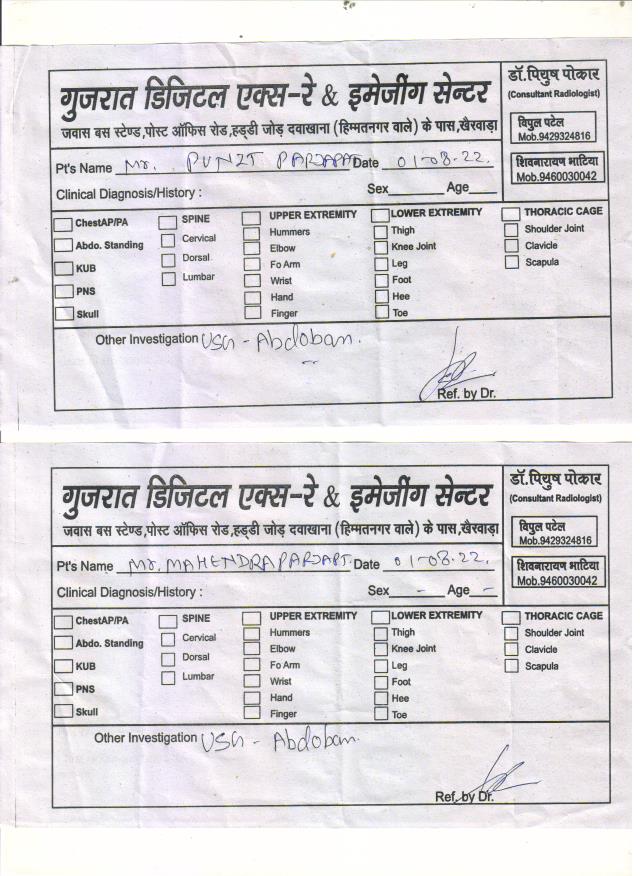 गुजरात डिजिटल एक्स-रे & इमेजींग सेन्टर
जवास बस स्टेण्ड,पोस्ट ऑफिस रोड,हड्डी जोड़ दवाखाना (हिम्मतनगर वाले) के पास,खैरवाड़ा
डॉ.पियुष पोकार
(Consultant Radiologist)
विपुल पटेल
Mob.9429324816
शिवनारायण भाटिया
Mob.9460030042
Pt's Name Mr. PUNJI PARJAPAT Date 01-08-22.
Clinical Diagnosis/History : Sex Age
ChestAP/PA
Abdo. Standing
KUB
PNS
Skull
SPINE
Cervical
Dorsal
Lumbar
UPPER EXTREMITY
Hummers
Elbow
Fo Arm
Wrist
Hand
Finger
LOWER EXTREMITY
Thigh
Knee Joint
Leg
Foot
Hee
Toe
THORACIC CAGE
Shoulder Joint
Clavicle
Scapula
Other Investigation USG - Abdoban.
Ref. by Dr.
गुजरात डिजिटल एक्स-रे & इमेजींग सेन्टर
जवास बस स्टेण्ड,पोस्ट ऑफिस रोड,हड्डी जोड़ दवाखाना (हिम्मतनगर वाले) के पास,खैरवाड़ा
डॉ.पियुष पोकार
(Consultant Radiologist)
विपुल पटेल
Mob.9429324816
शिवनारायण भाटिया
Mob.9460030042
Pt's Name Mr. MAHENDRA PARJAPT. Date 01-08-22.
Clinical Diagnosis/History : Sex - Age -
ChestAP/PA
Abdo. Standing
KUB
PNS
Skull
SPINE
Cervical
Dorsal
Lumbar
UPPER EXTREMITY
Hummers
Elbow
Fo Arm
Wrist
Hand
Finger
LOWER EXTREMITY
Thigh
Knee Joint
Leg
Foot
Hee
Toe
THORACIC CAGE
Shoulder Joint
Clavicle
Scapula
Other Investigation USG - Abdoban.
Ref. by Dr.